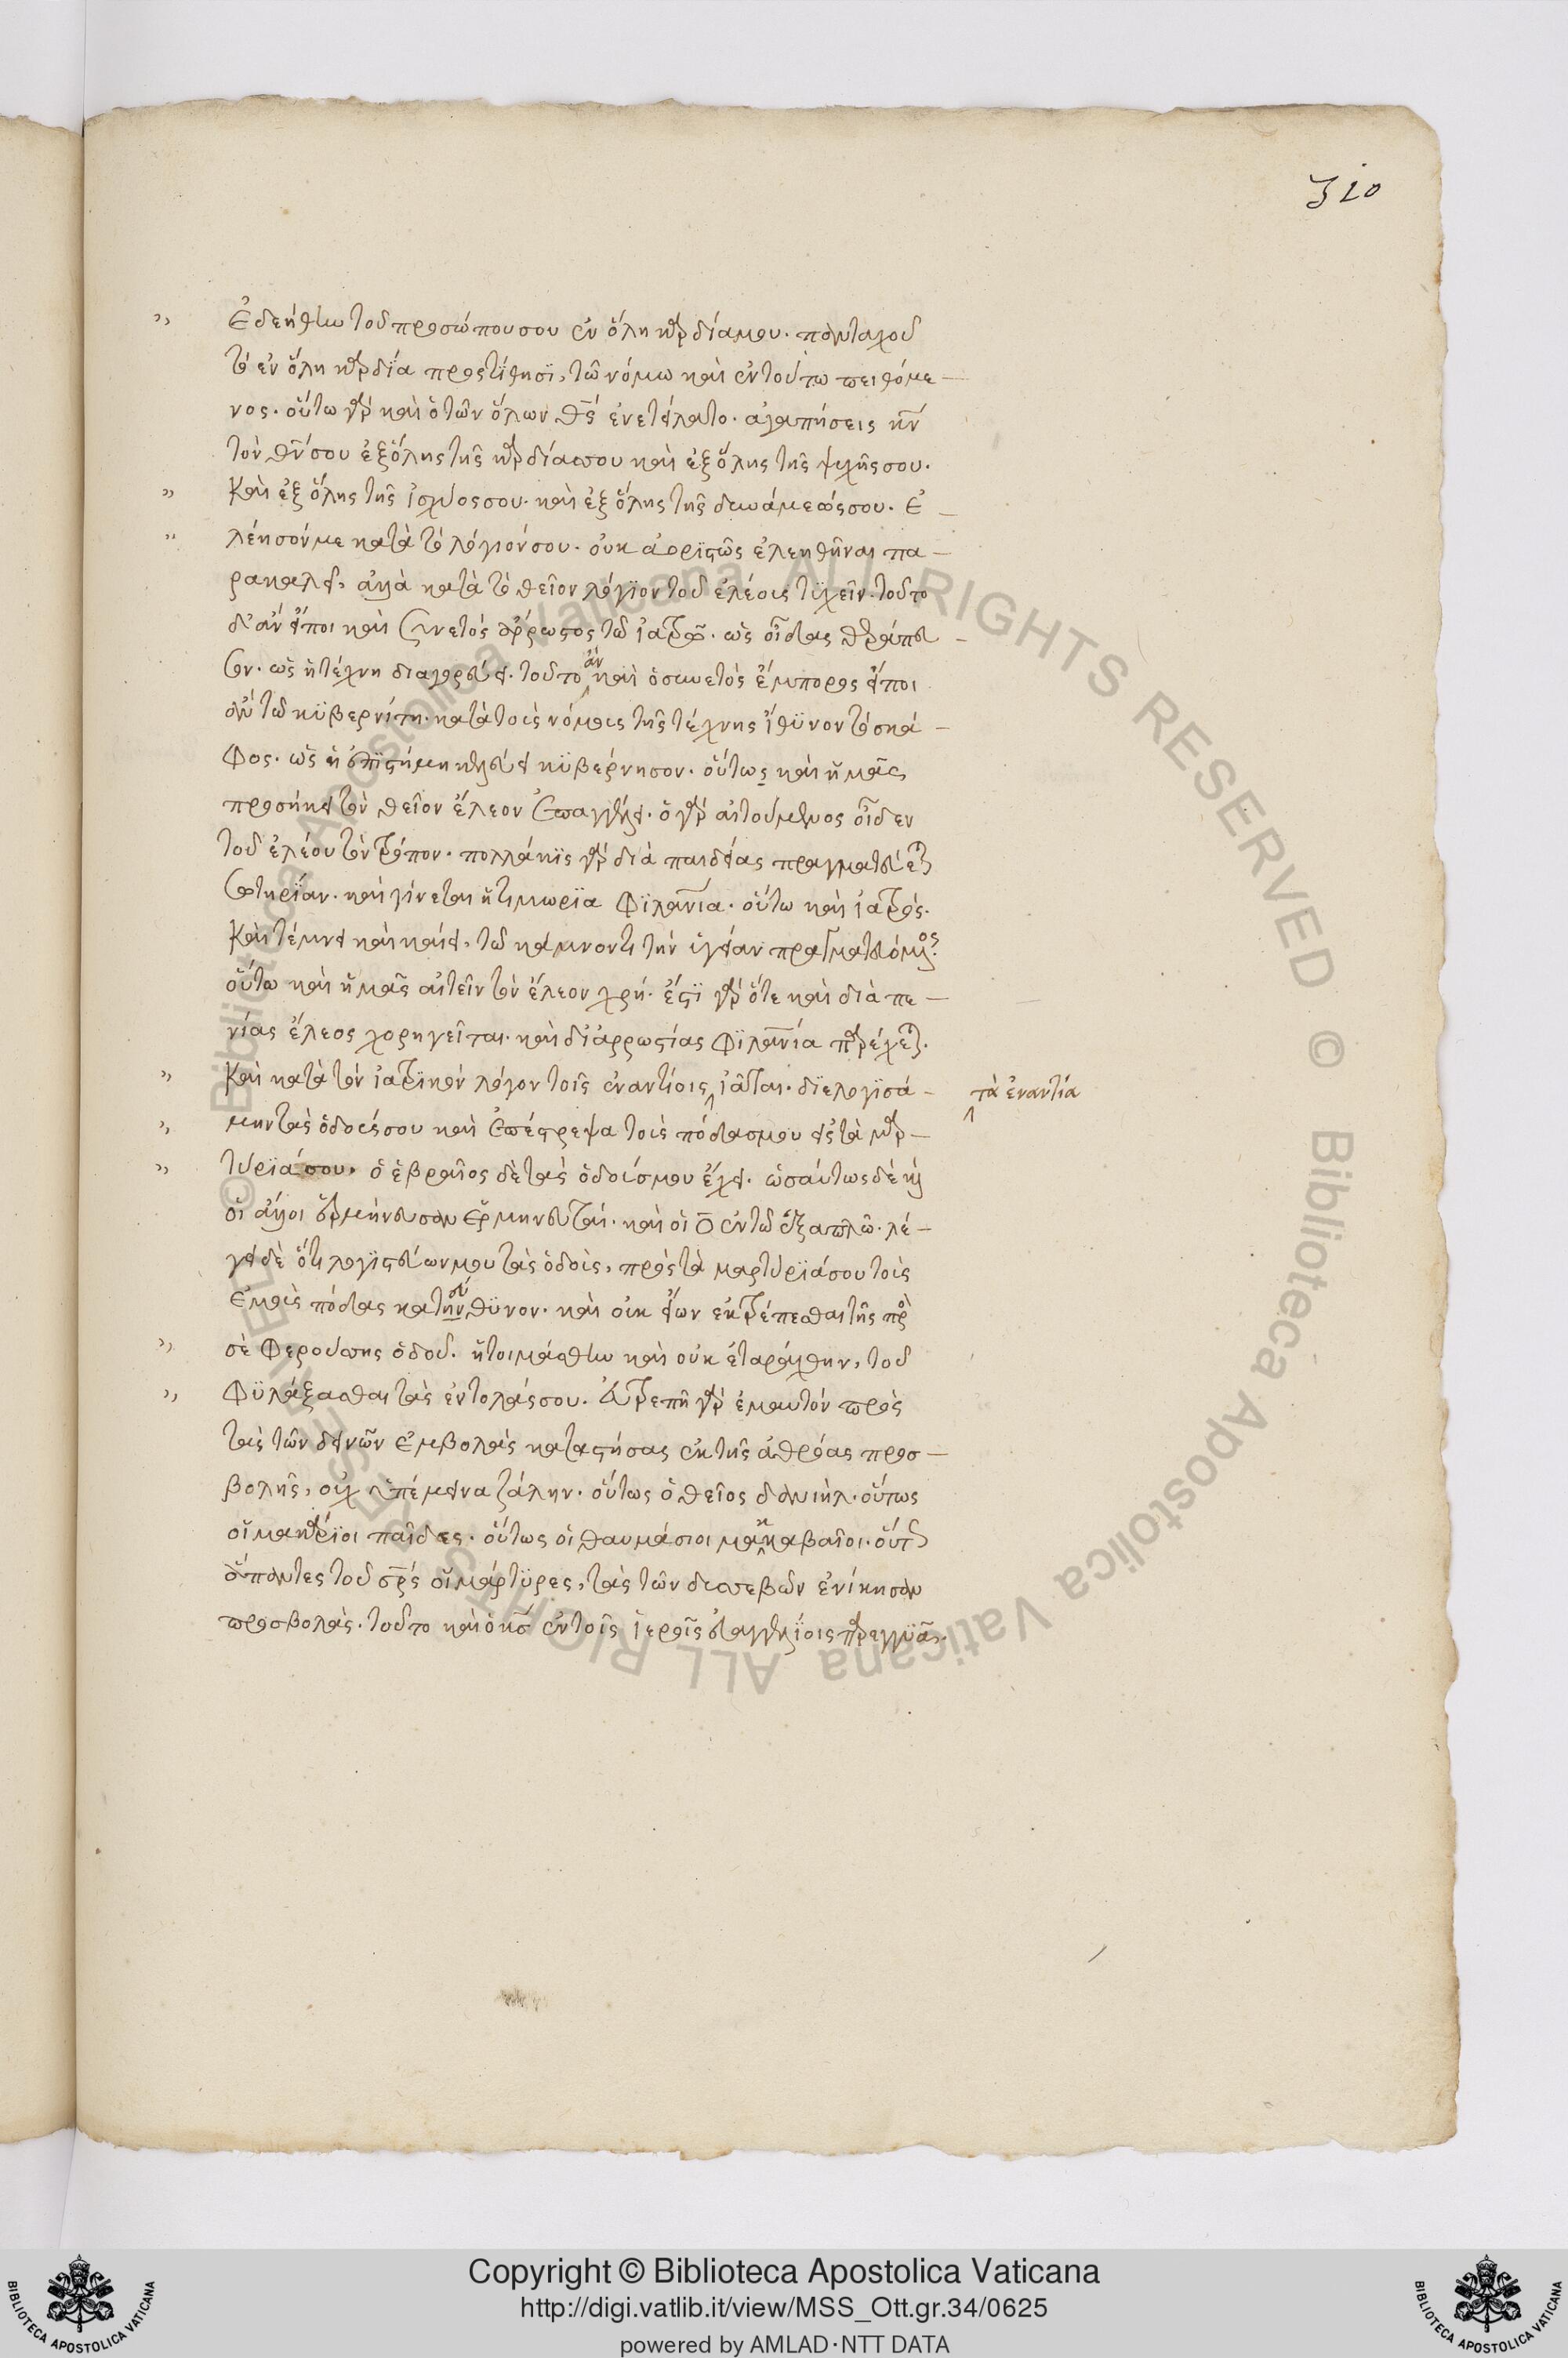 310
Ἐδεήθην τοῦ προσώπου σου ἐν ὅλη καρδία μου. πανταχοῦ
τὸ ἐν ὅλη καρδία προστίθησϊ, τῶ νόμω καὶ ἐν τούτω πειθόμε–
νος. οὕτω γὰρ καὶ ὁ τῶν ὅλων θς ἐνετείλατο. ἀγαπήσεις κν
τὸν θν σου ἐξ ὅλης τῆς καρδίας σου καὶ ἐξ ὅλης τῆς ψυχῆς σου.
καὶ ἐξ ὅλης τῆς ἰσχύος σου. καὶ ἐξ ὅλης τῆς δυνάμεώς σου. Ἐ–
λέησόν με κατὰ τὸ λόγιόν σου. οὐκ ἀορίστως ἐλεηθῆναι πα–
ρακαλεῖ, ἀλλὰ κατὰ τὸ θεῖον λόγϊον τοῦ ἐλέους τυχεῖν. τοῦτο
δ' ἂν εἴποι καὶ συνετὸς ἄρρωστος τῶ ἰατρῶ. ὡς οἶδας θεράπευ–
σον. ὡς ἡ τέχνη διαγορεύει. τοῦτο ἂν καὶ ὁ συνετὸς ἔμπορος εἴποι
ἂν τῶ κϋβερνίτη. κατὰ τοὺς νόμους τῆς τέχνης ἴθϋνον τὸ σκά–
φος. ὡς ἡ ἐπϊστήμη κελεύει κϋβέρνησον. οὕτως καὶ ἡμᾶς
προσήκει τὸν θεῖον ἔλεον ἐπαγγέλλει. ὁ γὰρ αἰτούμενος οἶδεν
τοῦ ἐλέου τὸν τρόπον. πολλάκϊς γὰρ διὰ παιδείας πραγματεύεται
σωτηρίαν. καὶ γίνεται ἡ τιμωρία φϊλανία. οὕτω καὶ ἰατρός.
καὶ τέμνει καὶ καίει, τῶ κάμνοντι τὴν ὑγείαν πραγματευόμενος.
οὕτω καὶ ἡμᾶς αἰτεῖν τὸν ἔλεον χρή. ἔστϊ γὰρ ὅτε καὶ διὰ πε–
νίας ἔλεος χορηγεῖται. καὶ δι' ἀρρωστίας φϊλανία παρέχεται.
καὶ κατὰ τὸν ἰατρϊκὸν λόγον τοῖς ἐναντίοις ἰᾶται. διελογϊσά–
τὰ ἐναντία
μην τὰς ὁδούς σου καὶ ἐπέστρεψα τοὺς πόδας μου εἰς τὰ μαρ–
τύρϊά σου. ὁ ἑβραῖος δὲ τὰς ὁδούς μου ἔχει. ὡσαύτως δὲ καὶ
οἱ ἄλλοι ἑρμήνευσαν ἑρμηνευταί. καὶ οἱ ο ἐν τῶ ἑξαπλῶ. λέ–
γει δὲ ὅτι λογϊστεύων μου τὰς ὁδοὺς, πρὸς τὰ μαρτύρϊά σου τοὺς
ἐμοὺς πόδας κατηύθϋνον. καὶ οὐκ εἴων ἐκτρέπεσθαι τῆς πρὸ
σὲ φερούσης ὁδοῦ. ἡτοιμάσθην καὶ οὐκ ἐταράχθην, τοῦ
φϋλάξασθαι τὰς ἐντολάς σου. Εὐτρεπῆ γὰρ ἐμαυτὸν πρὸς
τὰς τῶν δεινῶν ἐμβολὰς καταστήσας ἐκ τῆς ἀθρόας προσ–
βολῆς, οὐχ ὑπέμεινα ζάλην. οὕτως ὁ θεῖος δανιὴλ. οὕτως
οἱ μακάρϊοι παῖδες. οὕτως οἱ θαυμάσιοι μακκαβαῖοι. οὕτως
ἅπαντες τοῦ σρς οἱ μάρτϋρες, τὰς τῶν δυσσεβῶν ἐνίκησαν
προσβολάς. τοῦτο καὶ ὁ κς ἐν τοῖς ἱεροῖς εὐαγγελίοις παρεγγϋᾶ.
© Biblioteca Apostolica Vaticana ALL RIGHTS RESERVED © Biblioteca Apostolica Vaticana ALL RIGHTS RESERVED
BIBLIOTECA APOSTOLICA VATICANA
Copyright © Biblioteca Apostolica Vaticana
http://digi.vatlib.it/view/MSS_Ott.gr.34/0625
powered by AMLAD·NTT DATA
BIBLIOTECA APOSTOLICA VATICANA